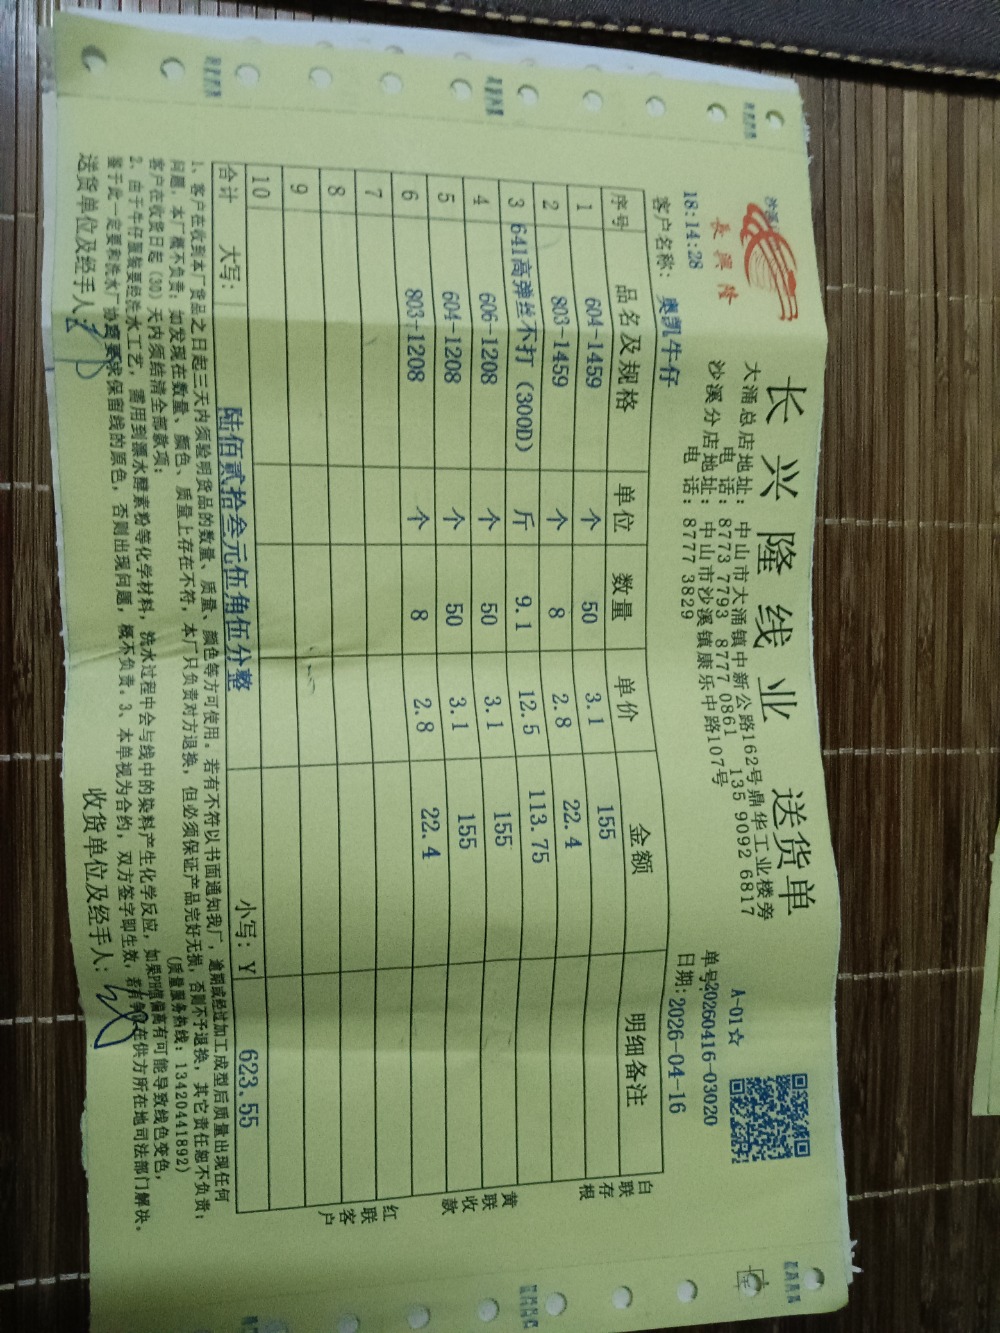 長興隆
长兴隆线业 送货单
大涌总店地址：中山市大涌镇中新公路162号鼎华工业楼旁
电话：8773 7793 8777 0861 135 9092 6817
沙溪分店地址：中山市沙溪镇康乐中路107号
电话：8777 3829
A-01☆
18:14:28
单号:20260416-03020
客户名称：奥凯牛仔
日期：2026-04-16
序号 品名及规格 单位 数量 单价 金额 明细备注
1 604-1459 个 50 3.1 155
2 803-1459 个 8 2.8 22.4
3 641高弹丝不打（300D） 斤 9.1 12.5 113.75
4 606-1208 个 50 3.1 155
5 604-1208 个 50 3.1 155
6 803-1208 个 8 2.8 22.4
7
8
9
10
合计 大写：陆佰贰拾叁元伍角伍分整 小写：Y 623.55
白联存根
黄联收款
红联客户
1、客户在收到本厂货品之日起三天内须验明货品的数量、质量、颜色等方可使用。若有不符以书面通知我厂，逾期或经过加工成型后质量出现任何
问题，本厂概不负责；如发现在数量、颜色、质量上存在不符，本厂只负责对方退换，但必须保证产品完好无损，否则不予退换，其它责任恕不负责；
客户在收货日起（30）天内须结清全部款项； （质量服务热线：13420441892）
2、由于牛仔服装要经洗水工艺，需用到漂水酵素粉等化学材料，洗水过程中会与线中的染料产生化学反应，如果PH值偏高有可能导致线色变色，
鉴于此一定要和洗水厂协商要求保留线的原色，否则出现问题，概不负责。3、本单视为合约，双方签字即生效，若有争议在供方所在地司法部门解决。
送货单位及经手人： 收货单位及经手人：